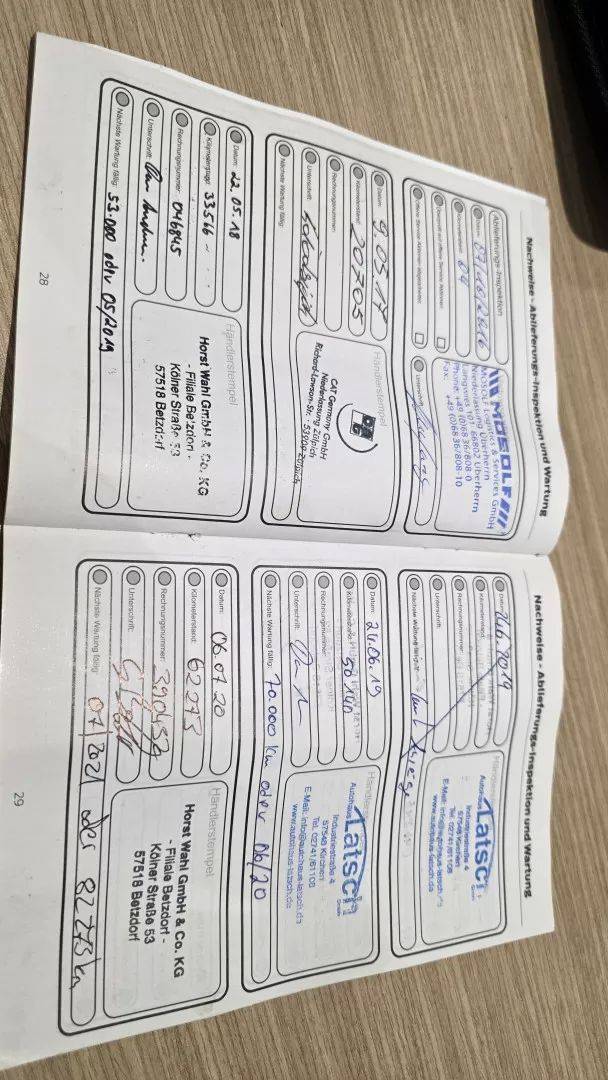 Nachweise - Ablieferungs-Inspektion und Wartung
Ablieferungs-Inspektion
Datum:
Kilometerstand: 04
Unterschrift:
MOSOLF
MOSOLF Logistics & Services GmbH
Niederlassung Überherrn
Langwies 101 · 66802 Überherrn
Phone: +49 (0)6836/808-0
Fax: +49 (0)6836/808-10
Datum: 9.05.17
Kilometerstand: 20705
Rechnungsnummer:
Unterschrift:
Nächste Wartung fällig:
Händlerstempel
CAT Germany GmbH
Niederlassung Zülpich
Richard-Lawson-Str. · 53909 Zülpich
Datum: 22.05.18
Kilometerstand: 33566
Rechnungsnummer: 046845
Unterschrift:
Nächste Wartung fällig: 53.000 oder 05/2019
Händlerstempel
Horst Wahl GmbH & Co. KG
- Filiale Betzdorf -
Kölner Straße 53
57518 Betzdorf
28
Nachweise - Ablieferungs-Inspektion und Wartung
Datum: 24.6.2019
Kilometerstand:
Rechnungsnummer:
Unterschrift:
Nächste Wartung fällig:
Autohaus Latsch GmbH
Industriestraße 4
57548 Kirchen
Tel. 02741/61108
E-Mail: info@autohaus-latsch.de
www.autohaus-latsch.de
Datum: 24.06.19
Kilometerstand: 50140
Rechnungsnummer:
Unterschrift:
Nächste Wartung fällig: 70.000 km oder 06/20
Autohaus Latsch GmbH
Industriestraße 4
57548 Kirchen
Tel. 02741/61108
E-Mail: info@autohaus-latsch.de
www.autohaus-latsch.de
Datum: 06.07.20
Kilometerstand: 62273
Rechnungsnummer:
Unterschrift:
Nächste Wartung fällig: 07/2021 oder 82273 km
Händlerstempel
Horst Wahl GmbH & Co. KG
- Filiale Betzdorf -
Kölner Straße 53
57518 Betzdorf
29